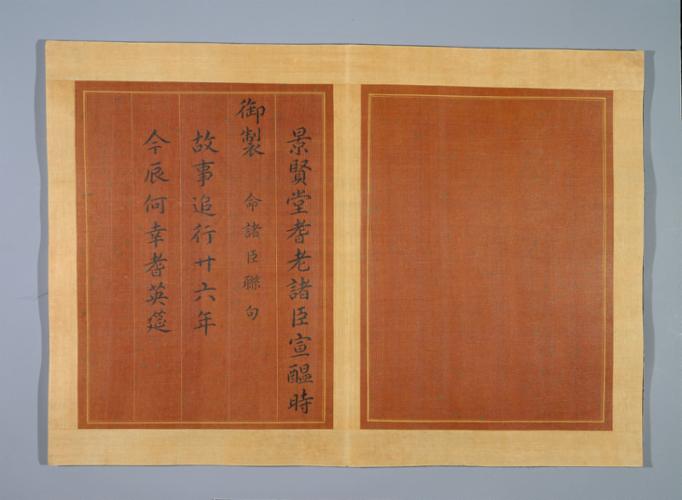 景賢堂耆老諸臣宣醞時
御製 命諸臣聯句
故事追行廿六年
今辰何幸耆英筵